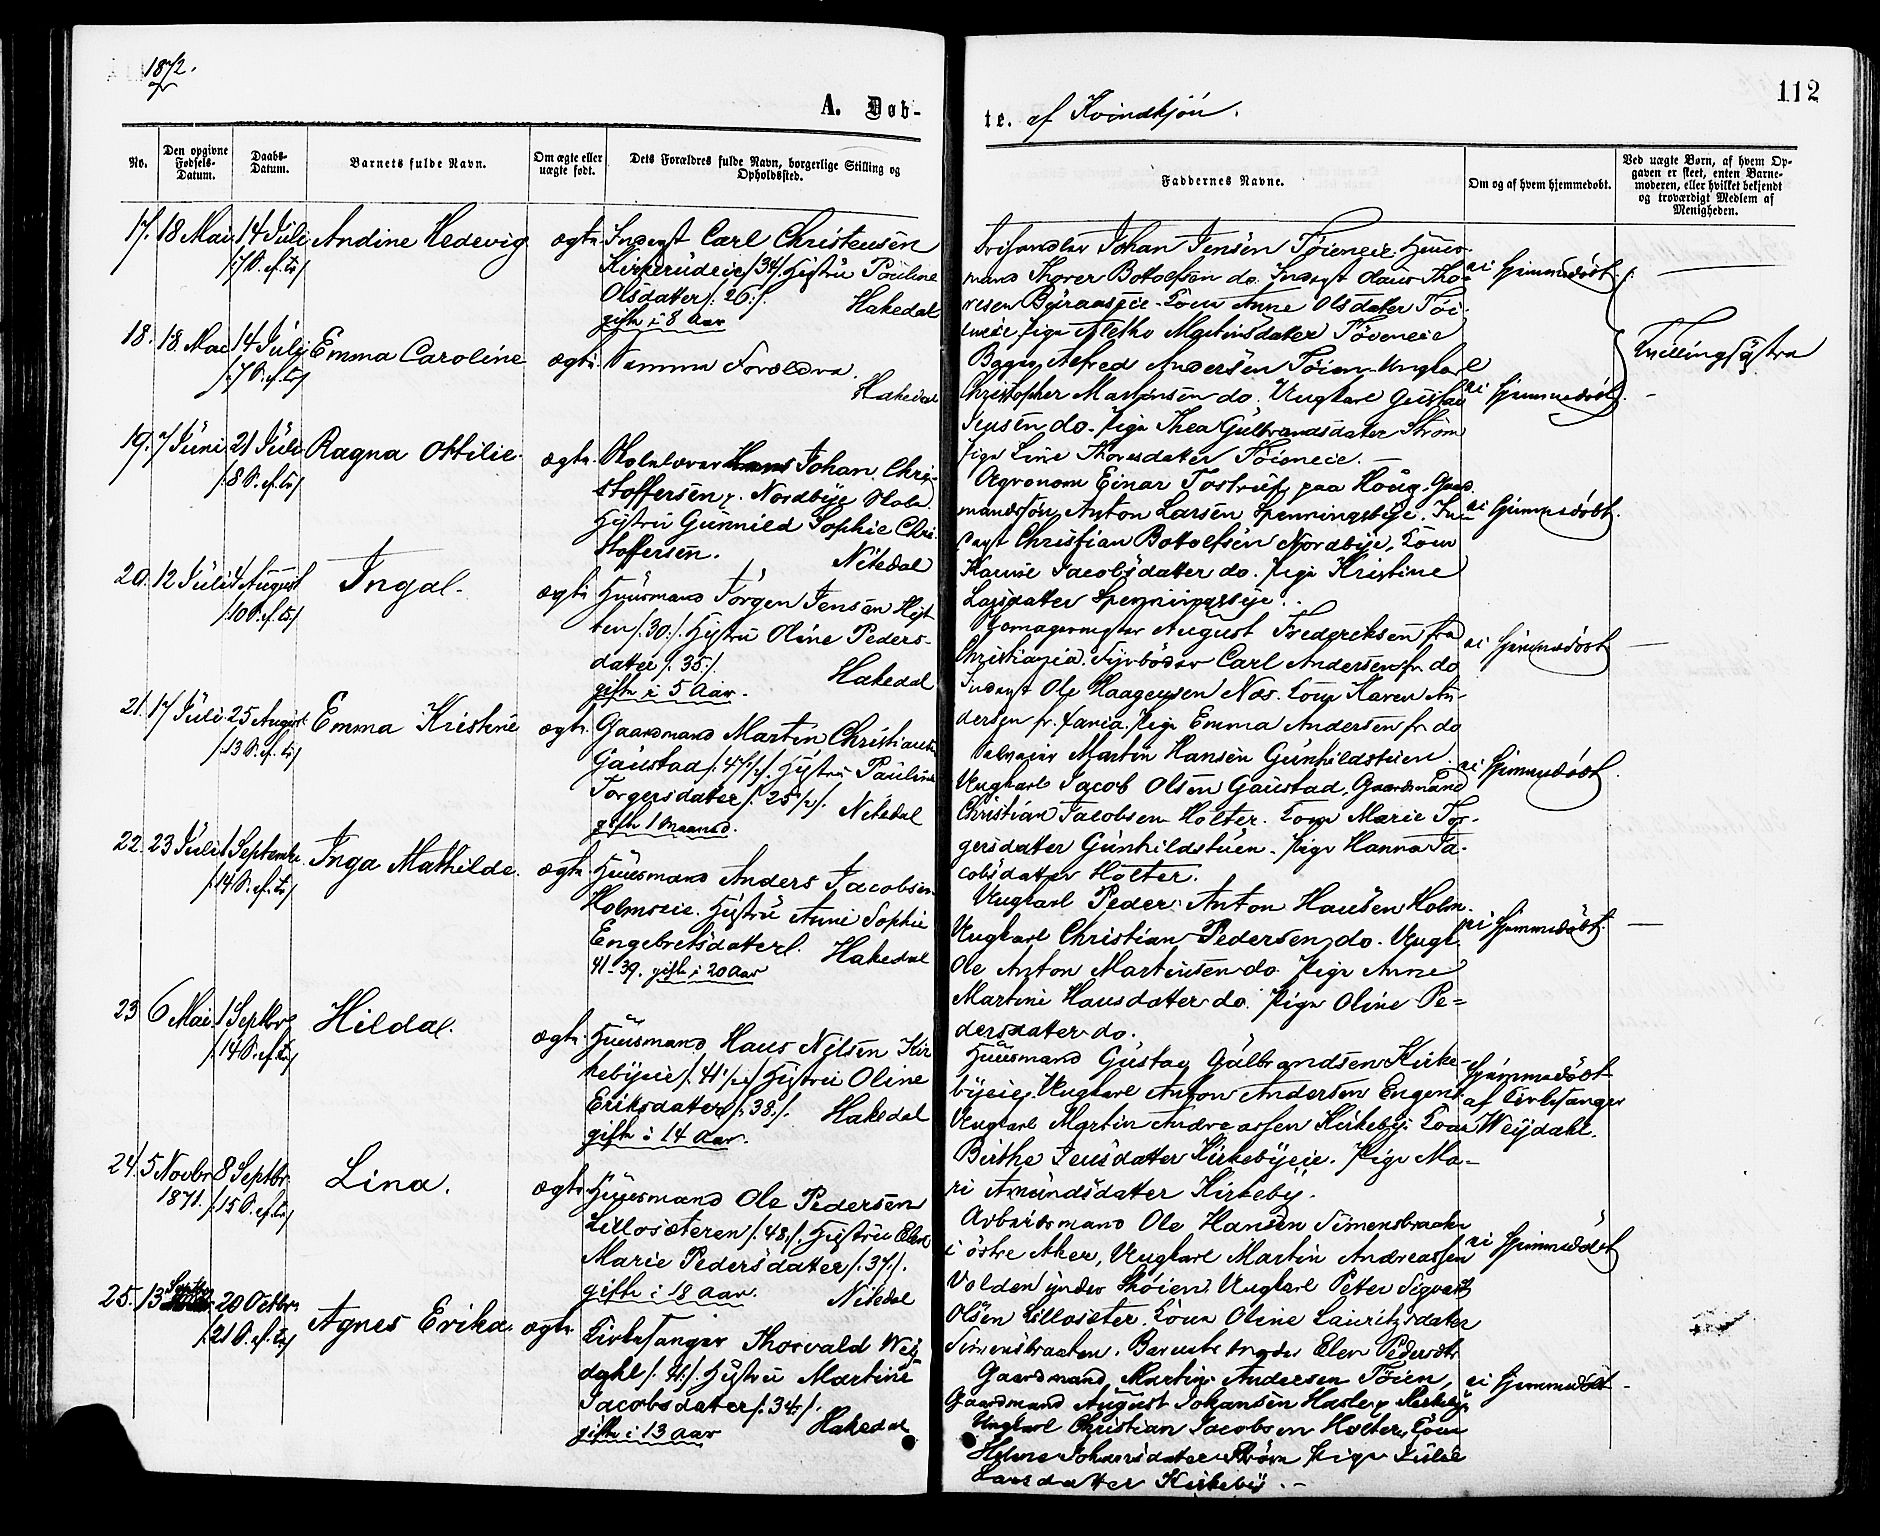 1872.
112
A. Døb-
te. af Kvindkjön.
No.
Den opgivne Fødsels-Datum.
Daabs-Datum.
Barnets fulde Navn.
Om ægte eller uægte født.
Dets Forældres fulde Navn, borgerlige Stilling og Opholdssted.
Faddernes Navne.
Om og af hvem hjemmedøbt.
Ved uægte Børn, af hvem Op-
gaven er skeet, enten Barne-
moderen, eller hvilket bekjendt
og troværdigt Medlem af
Menigheden.
17. 18 Mai 14 Juli Andine Hedevig ægte Inderst Carl Christensen
/:7 S. ef. Tr:/ Kirkerudeie /:34:/ Hustru Pauline
Olsdatter /:26:/. Hakedal
gifte i 8 Aar
Johan Jensen Töieneie Huus-
mand Thorer Botolfsen do. Inderst Olaus Tho-
resen Byraaseie. Kone Anne Olsdatter Töi-
eneie, Pige Alethe Martinsdatter Töieneie
ei hjemmedøbt.
18. 18 Mai 14 Juli Emma Caroline ægte Samme Forældre.
/:7 S. ef. Tr:/ Hakedal
Alfred Andersen Töien. Ungkarl
Christopher Martinsen do. Ungkarl Gustav
Jensen do. Pige Thea Gulbrandsdatter Ström
Pige Line Thoresdatter Töieneie.
ei hjemmedøbt.
Tvillingsöstre
19. 7 Juni 21 Juli Ragna Ottilie. ægte Skolelærer Hans Johan Chri-
/:8 S. ef. Tr:/ stoffersen, Nordbye Skole.
Hustru Gunnild Sophie Chri-
stoffersen. Nitedal
Agronom Einar Tostrup paa Houg. Gaard-
mandssön Anton Larsen Spenningsbye. In-
derst Christian Botolfsen Nordbye, Kone
Jacobsdatter do. Pige Kristine
Larsdatter Spenningsbye.
ei hjemmedøbt.
20. 12 Juli 4 August Ingal. ægte Huusmand Jörgen Jensen
/:10 S. ef. Tr:/ /:30:/. Hustru Oline Peders-
datter /:35:/. Hakedal
gifte i 5 Aar.
August Frederiksen fra
Christiania. Fyrböder Carl Andersen fr. do
Inderst Ole Haagensen Næs. Kone Karen An-
dersen fr. Pige Emma Andersen fr. do
ei hjemmedøbt
21. 17 Juli 25 August Emma Kristine ægte Gaardmand Martin Christiansen
/:13 S. ef. Tr:/ Gaustad /:47½:/. Hustru Pauline
Torgersdatter /:25½:/. Nitedal
gifte 1 Maaned.
Selveier Martin Hansen Gunhildstuen.
Ungkarl Jacob Olsen Gaustad, Gaardmand
Christian Jacobsen Holter. Kone Marie Tor-
gersdatter Gunhildstuen. Pige Hanna Ja-
cobsdatter Holter.
ei hjemmedøbt.
22. 23 Juli 1 Septembr. Inga Mathilde. ægte Huusmand Anders Jacobsen
/:14 S. ef. Tr:/ Holmseie. Hustru Anne Sophie
Engebretsdatter. Hakedal
41-39. gifte i 20 Aar
Ungkarl Peder Anton Hansen Holm.
Ungkarl Christian Pedersen do. Ungk.
Ole Anton Martinsen do. Pige Anne
Martine Hansdatter do. Pige Oline Pe-
dersdatter do.
ei hjemmedøbt.
23 6 Mai 1 Septbr Hildal. ægte Huusmand Hans Nilsen Kir-
/:14 S. ef. Tr:/ kebyeie /:41½:/ Hustru Oline
Eriksdatter /:38:/. Hakedal
gifte i 14 Aar.
Huusmand Gustav Gulbrandsen Kirke-
byeie, Ungkarl Anton Andersen Engen.
Ungkarl Martin Andreassen Kirkeby. Kone
Birthe Jensdatter Kirkebyeie. Pige Ma-
ri Amundsdatter Kirkeby.
Hjemmedøbt
af Kirkesanger
Weydahl.
24. 5 Novbr 8 Septbr. Lina. ægte Huusmand Ole Pedersen
1871. /:15 S. ef. Tr:/ Lillosæteren /:48:/. Hustru Elen
Marie Pedersdatter /:37:/.
gifte i 18 Aar. Nitedal
Arbeidsmand Ole Hansen Simensbraaten
i östre Aker, Ungkarl Martin Andreassen
Volden under Skøien. Ungkarl Peter Sigvart
Olsen Lillosæter. Kone Oline Lauritzsdatter
Simensbraaten. Barnets Moder Elen Pedersdtr
ei hjemmedøbt
25. 13 Septbr 20 Octbr. Agnes Erika. ægte Kirkesanger Thorvald Wey-
/:21 S. ef. Tr:/ dahl /:41:/. Hustru Martine
Jacobsdatter /:34:/.
gifte i 13 Aar Hakedal
Gaardmand Martin Andersen Töien,
Gaardmand August Johansen Hasler, Kirkeby.
Ungkarl Christian Jacobsen Holter, Kone
Helene Johansdatter Ström Pige Julie
Larsdatter Kirkeby.
ei hjemmedøbt